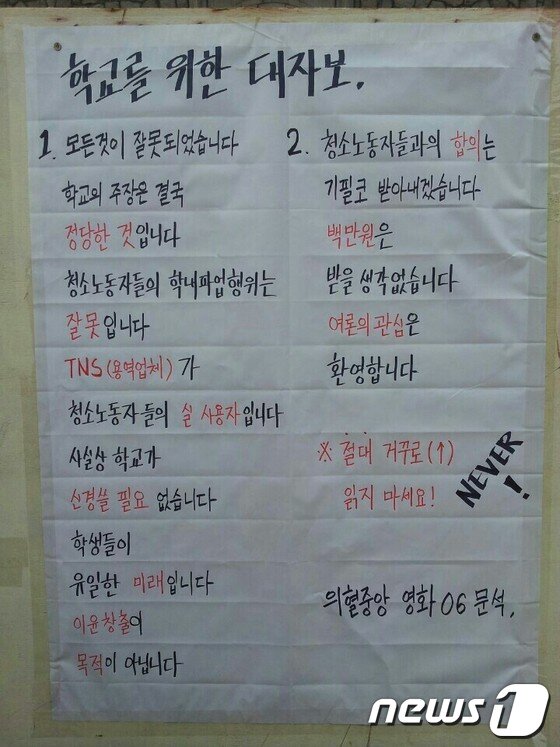 학교를 위한 대자보.
1. 모든것이 잘못되었습니다
학교의 주장은 결국
정당한 것입니다
청소노동자들의 학내파업행위는
잘못입니다
TNS(용역업체)가
청소노동자들의 실 사용자입니다
사실상 학교가
신경쓸 필요 없습니다
학생들이
유일한 미래입니다
이윤창출이
목적이 아닙니다
2. 청소노동자들과의 합의는
기필코 받아내겠습니다
백만원은
받을 생각없습니다
여론의 관심은
환영합니다
※ 절대 거꾸로(↑)
읽지 마세요!
NEVER!
의혈중앙 영화06 문석.
news1